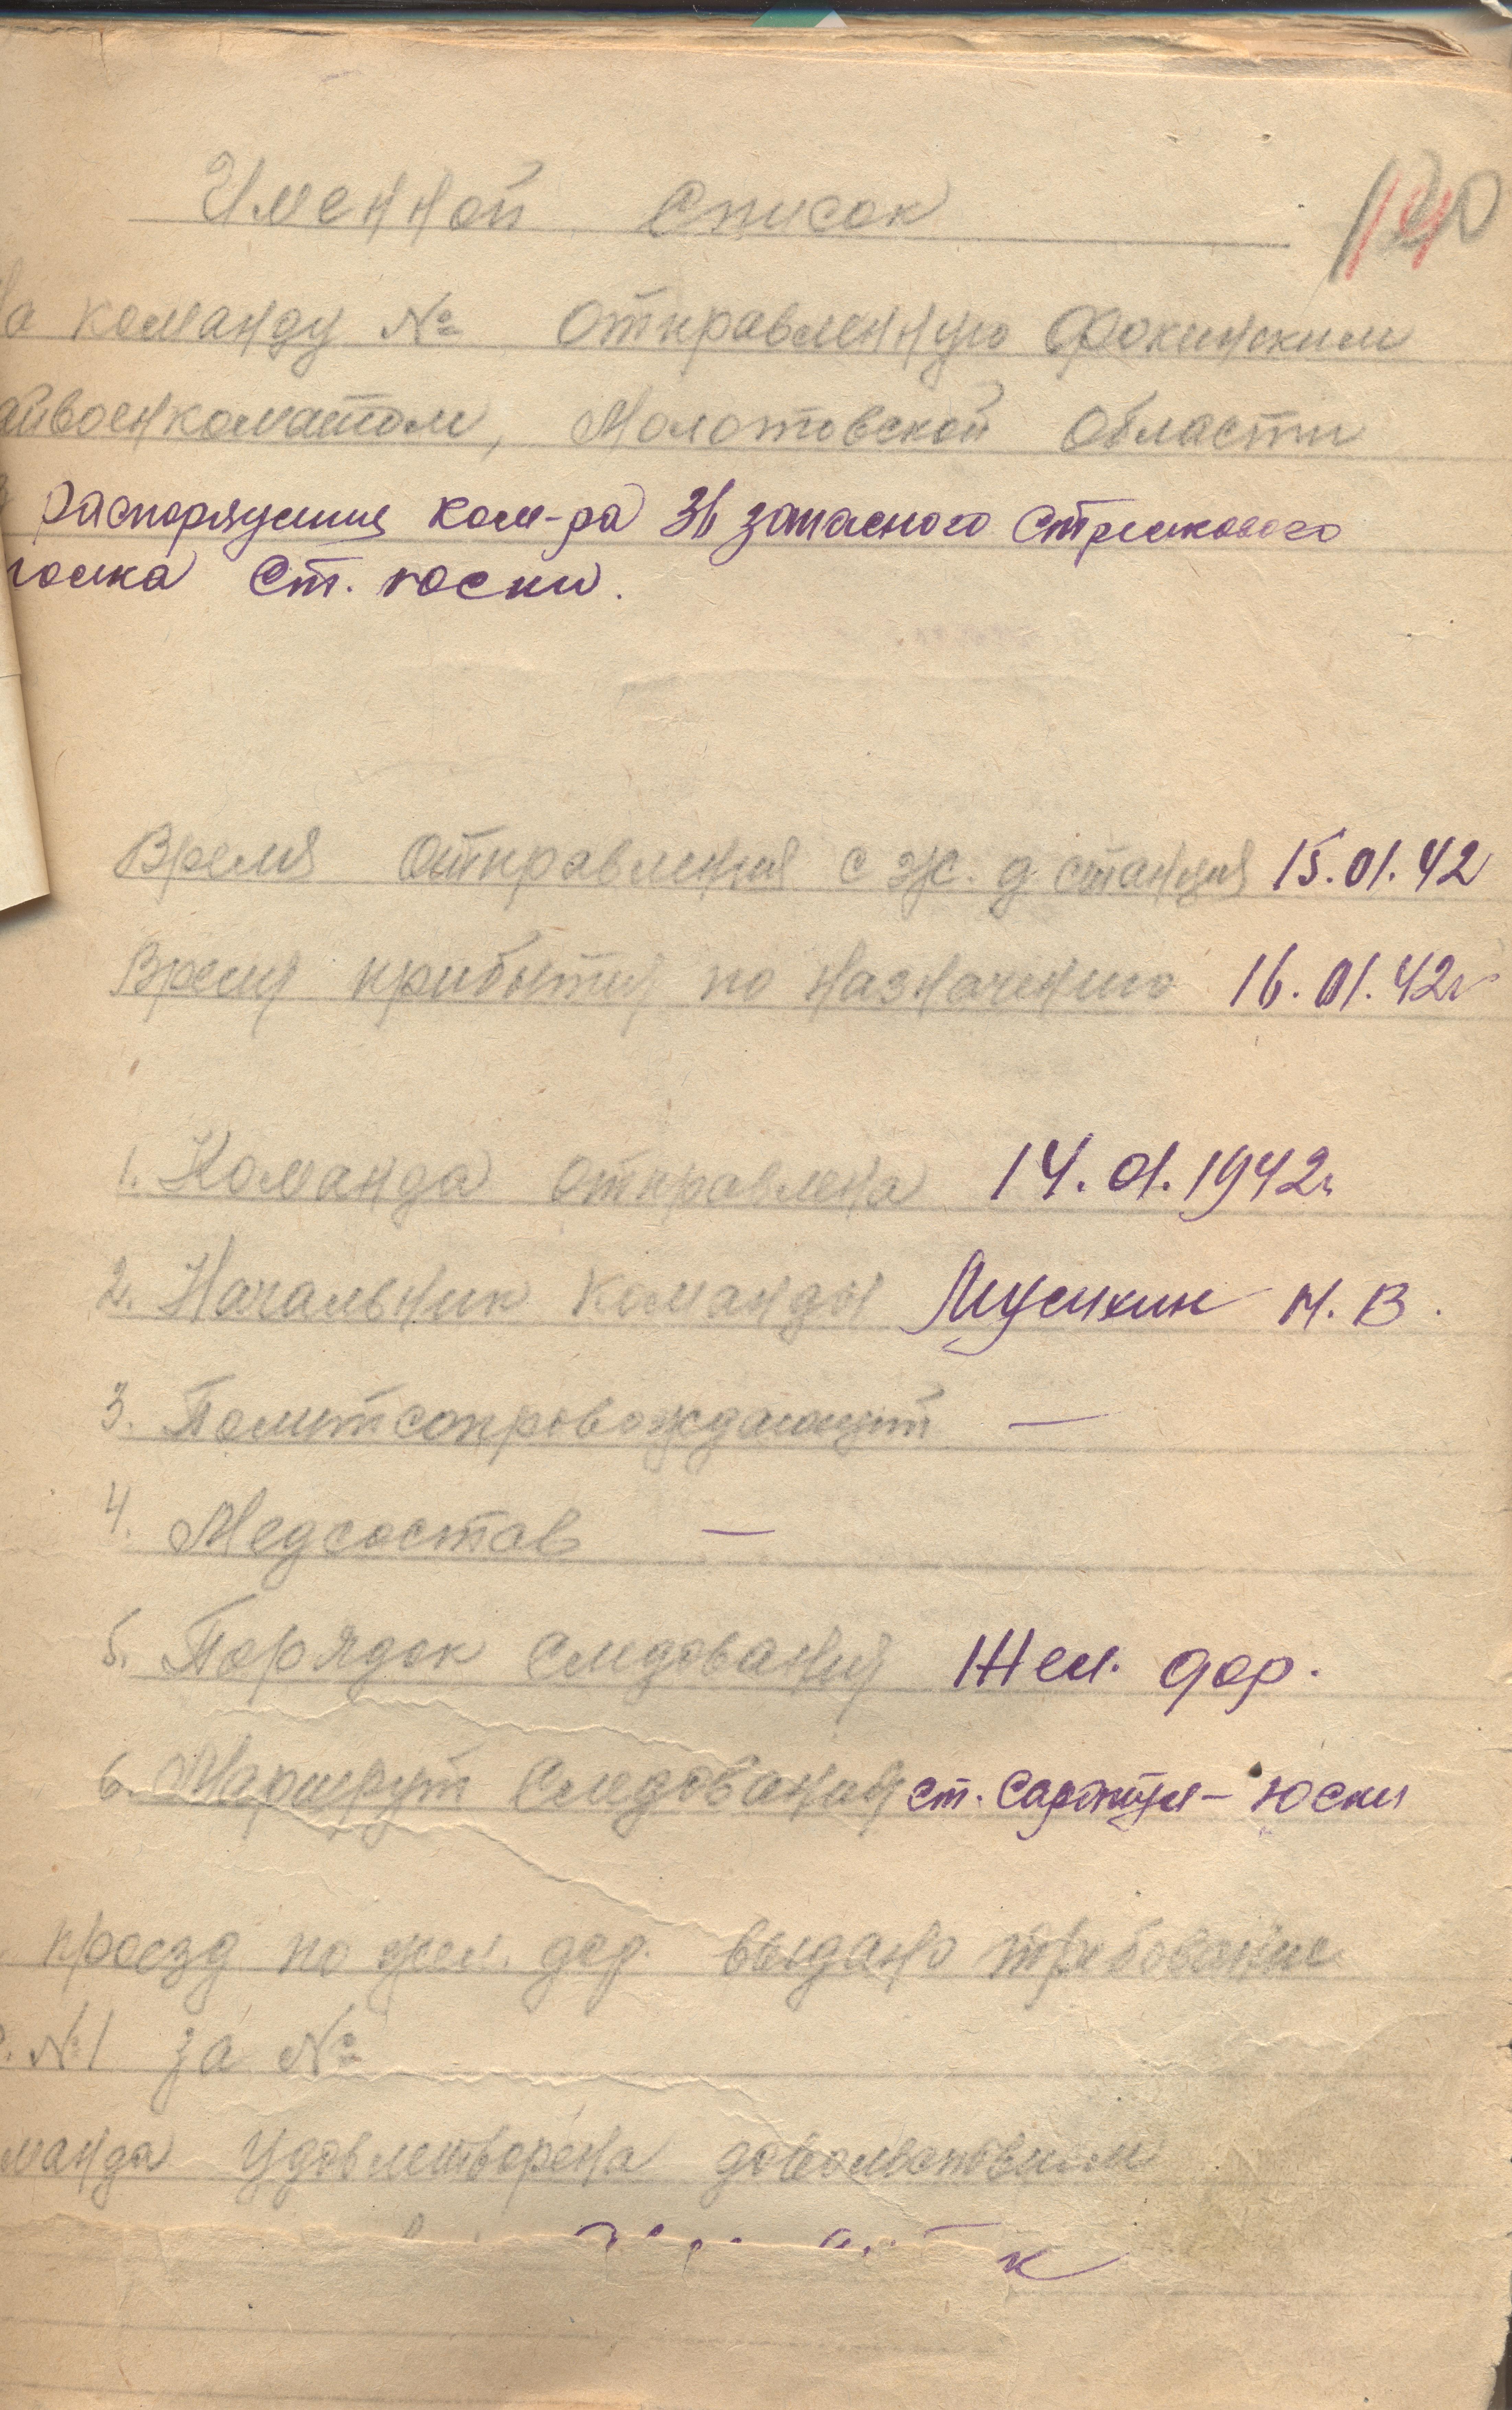 Именной Список
на команду № отправленную Фокинским
айвоенкоматом, Молотовской области
распоряжения ком-ра 36 запасного стрелкового
полка ст. Юски.
Время отправления с ж. д станция 15.01.42
Время прибытия по назначению 16.01.42г
1. Команда отправлена 14.01.1942г
2. Начальник команды Н. В.
3. Политсопровождающий —
4. Медсостав —
5. Порядок следования Жел. дор.
6. Маршрут следования ст. - Юски
проезд по жел. дор. выдано требование
№1 за №
манда удовлетворена довольствием